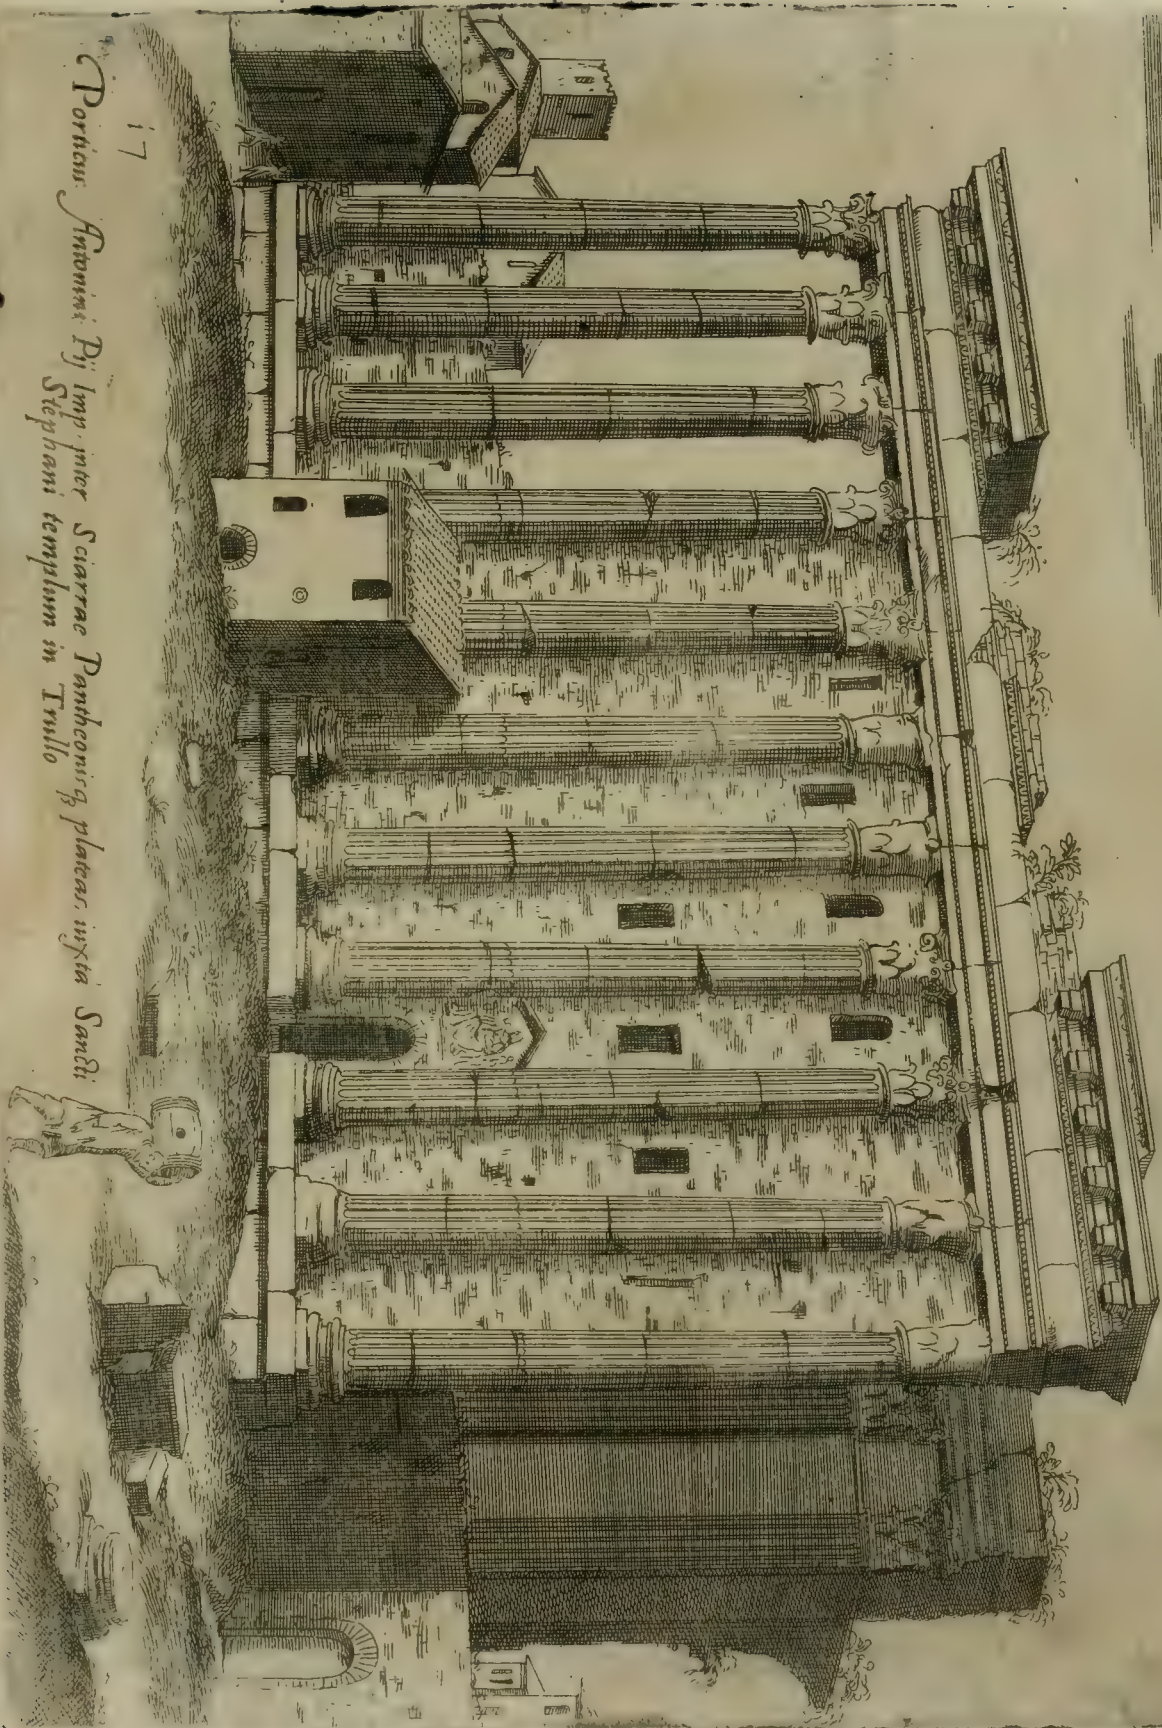 17
Porticus Antonini Pij Imp. inter Sciarrae Pantheonisq; plateas iuxta Sancti
Stephani templum in Trullo